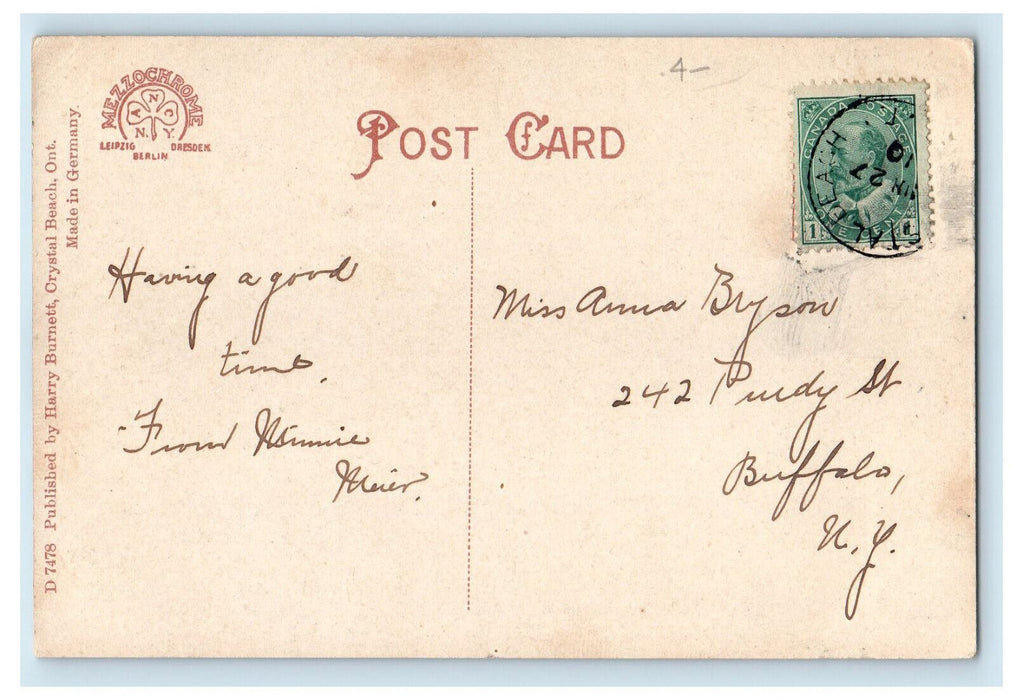 4-
MEZZOCHROME
A N C
N. Y.
LEIPZIG DRESDEN
BERLIN
POST CARD
CANADA POSTAGE
1 ONE CENT 1
STAL BEACH
27
10
D 7478 Published by Harry Burnett, Crystal Beach, Ont.
Made in Germany.
Having a good
time.
From Minnie
Meier.
Miss Anna Bryson
242 Purdy St
Buffalo,
N.Y.